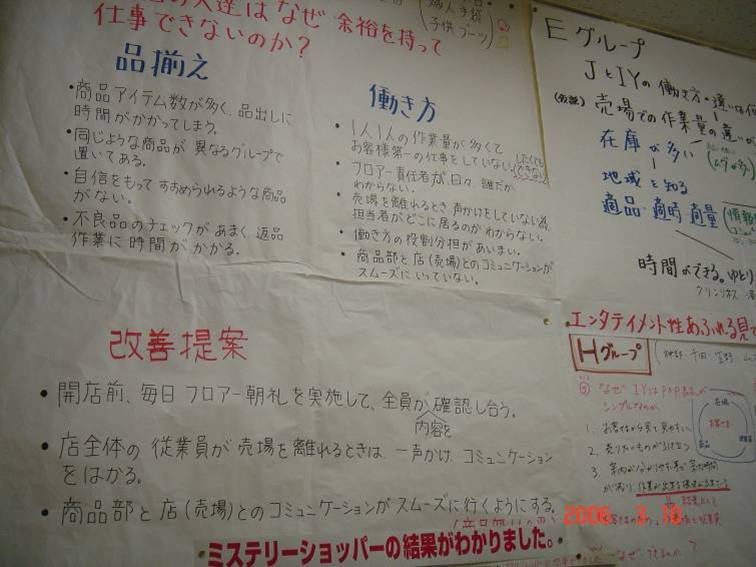 達はなぜ 余裕を持って
仕事できないのか？
婦人手袋
子供ブーツ
品揃え
・商品アイテム数が多く、品出しに
時間がかかってしまう。
・同じような商品が異なるグループで
置いてある。
・自信をもってすすめられるような商品
がない。
・不良品のチェックがあまく返品
作業に時間がかかる。
働き方
・1人1人の作業量が多くて
お客様第一の仕事をしていない。
したくてもできない
・フロアー責任者が、日々誰だか
わからない。
・売場を離れるとき声かけをしていない為、
担当者がどこに居るのかわからない。
・働き方の役割分担があいまい。
・商品部と店(売場)とのコミュニケーションが
スムーズにいっていない。
改善提案
・開店前、毎日フロアー朝礼を実施して、全員が内容を確認し合う。
・店全体の従業員が売場を離れるときは一声かけ、コミュニケーション
をはかる。
・商品部と店(売場)とのコミュニケーションがスムーズに行くようにする。
ミステリーショッパーの結果がわかりました。
Eグループ
JとIYの働き方・違いは何
(仮説) 売場での作業量の違いが
在庫が多い
地域を知る
適品・適時・適量
時間ができる。ゆとり
クリンリネス
エンタテイメント性あふれる見
Hグループ
なぜIYは
シンプルなのか
1. お客様から見て見やすい
2. 売りたいものが
3.
2006. 3.10